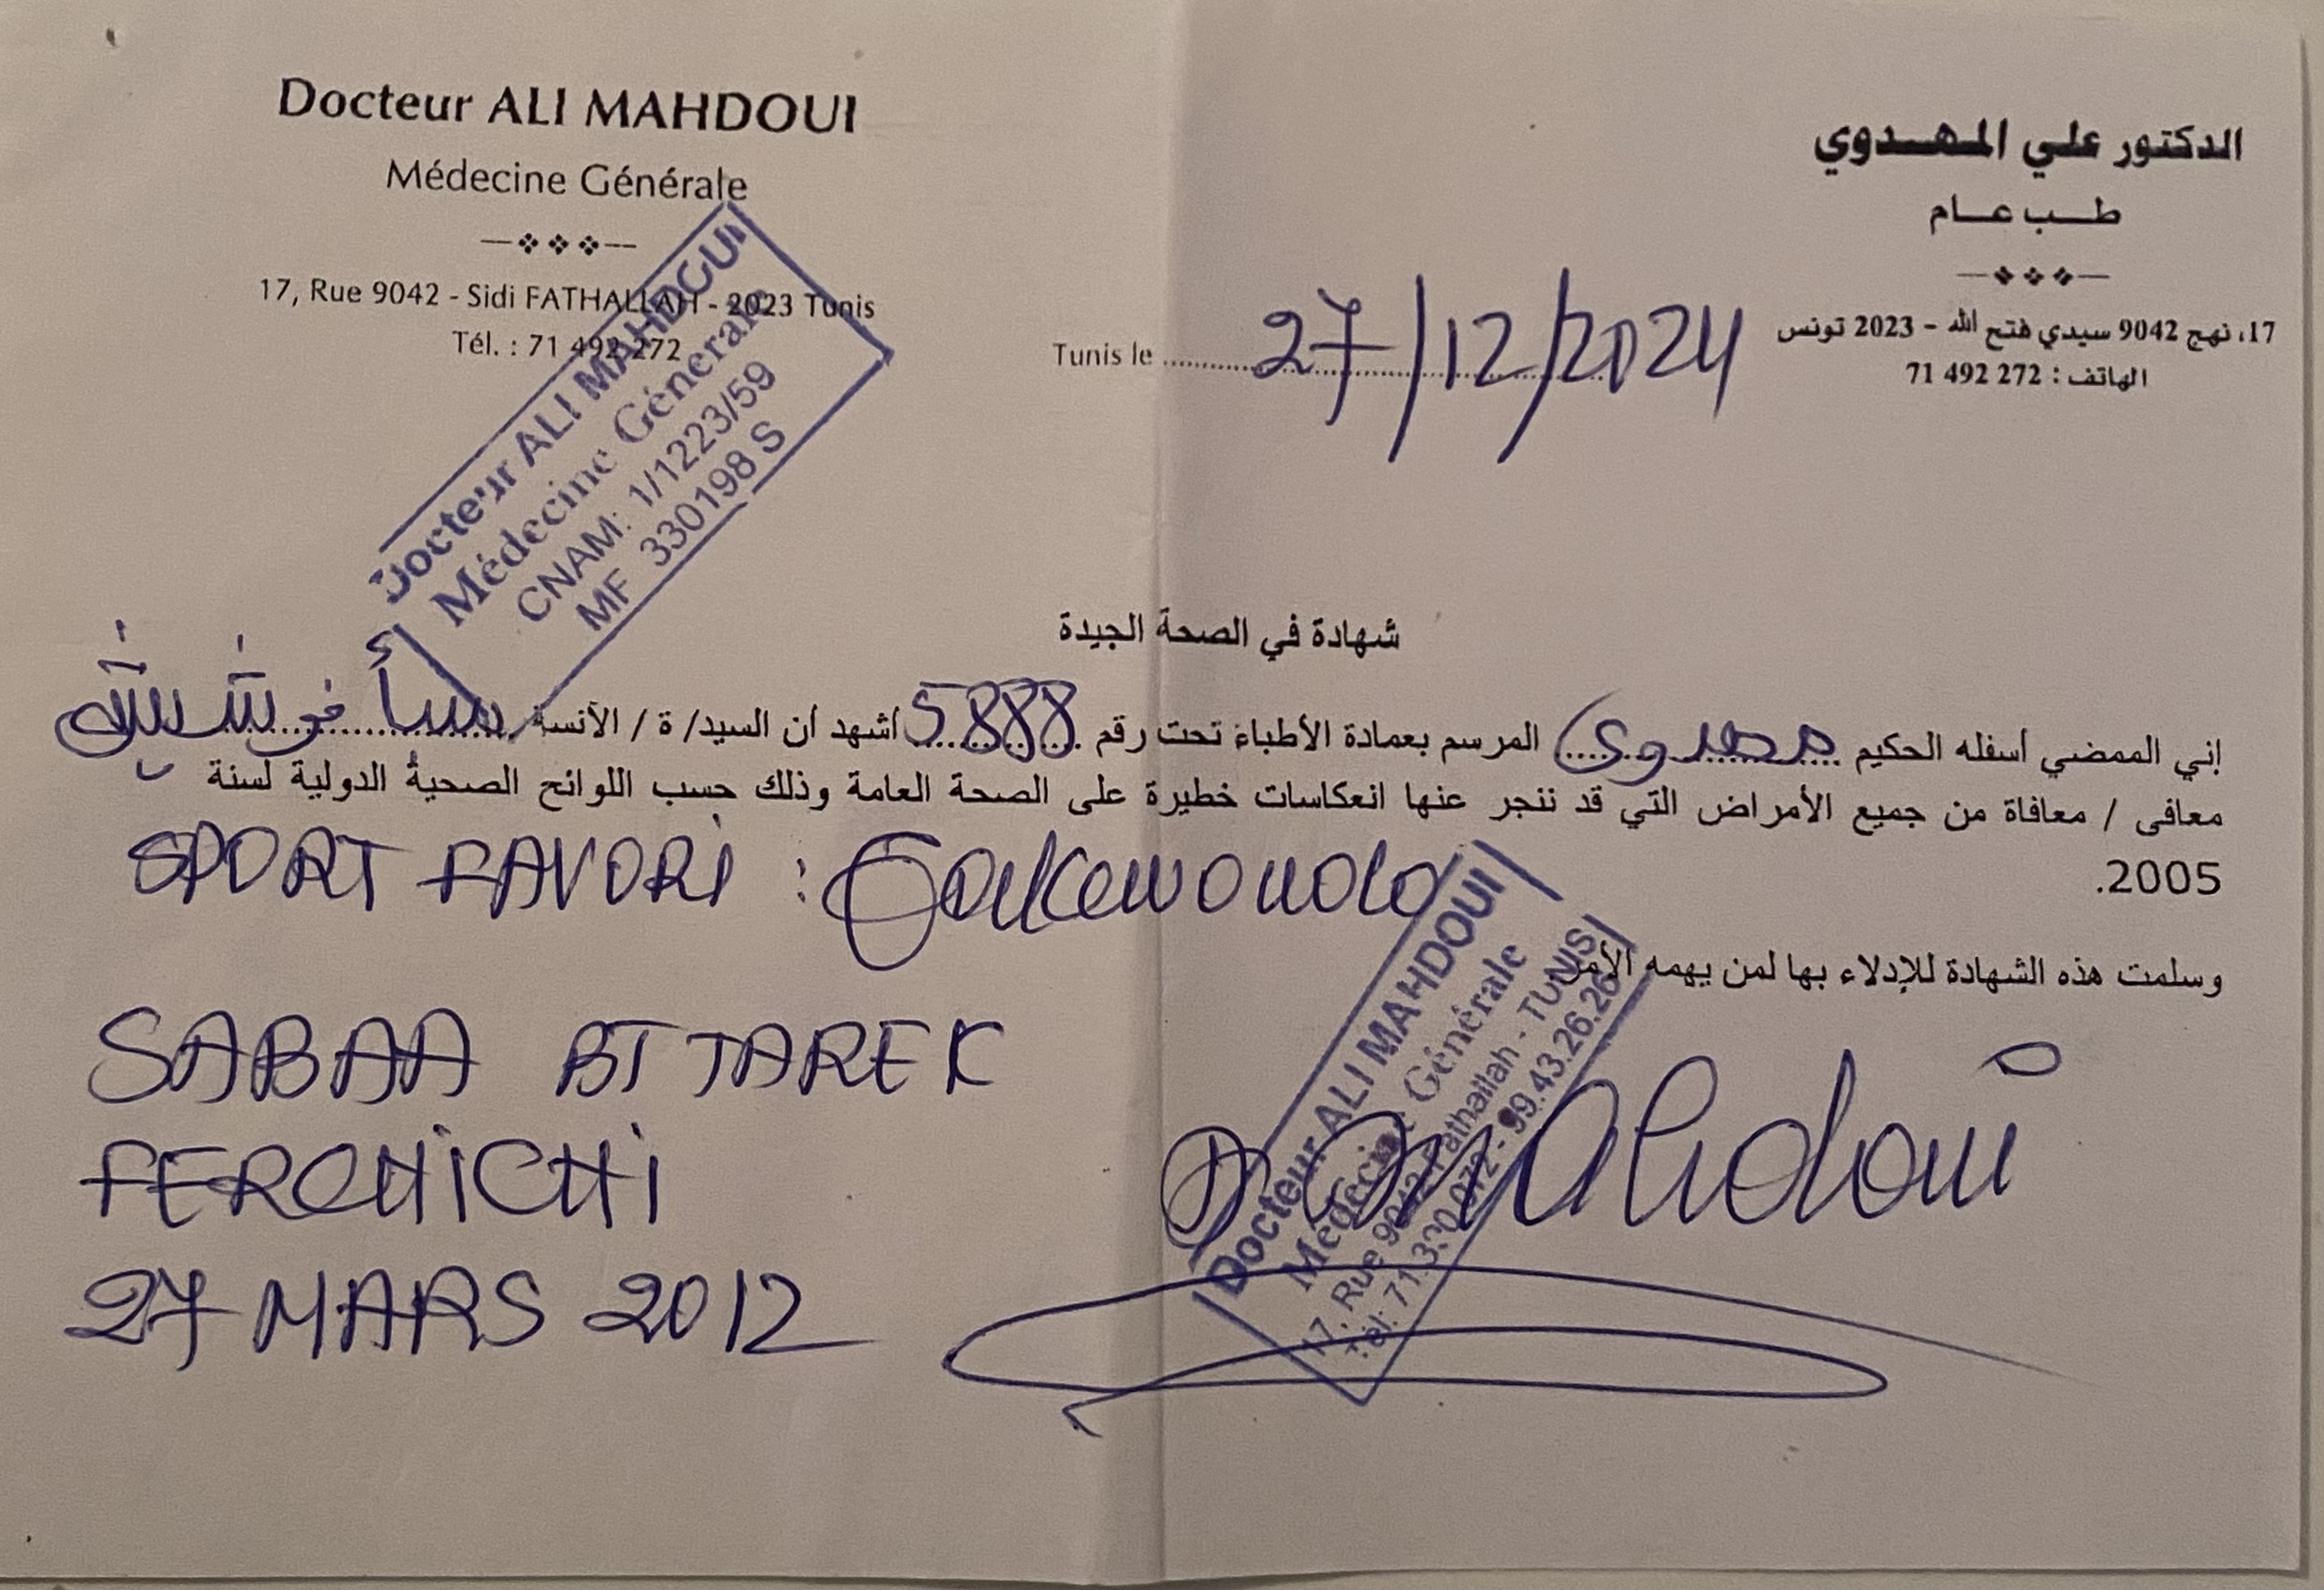 Docteur ALI MAHDOUI
Médecine Générale
17, Rue 9042 - Sidi FATHALLAH - 2023 Tunis
Tél. : 71 492 272
الدكتور علي المهدوي
طب عام
17، نهج 9042 سيدي فتح الله - 2023 تونس
الهاتف : 272 492 71
Tunis le 27/12/2024
Docteur ALI MAHDOUI
Médecine Générale
CNAM: 1/1223/59
MF 330198 S
شهادة في الصحة الجيدة
إني الممضي أسفله الحكيم مهدوي المرسم بعمادة الأطباء تحت رقم 5888 أشهد أن السيد/ ة / الآنسة سبأ فرشيشي
معافى / معافاة من جميع الأمراض التي قد ننجر عنها انعكاسات خطيرة على الصحة العامة وذلك حسب اللوائح الصحية الدولية لسنة
2005.
SPORT FAVORI : Taekwondo
وسلمت هذه الشهادة للإدلاء بها لمن يهمه الأمر
SABAA BT TAREK
FERCHICHI
27 MARS 2012
Docteur ALI MAHDOUI
Médecine Générale
17, Rue 9042 Fathallah - TUNIS
Tél: 71.330.072 - 99.43.26.26
Dr Mahdoui